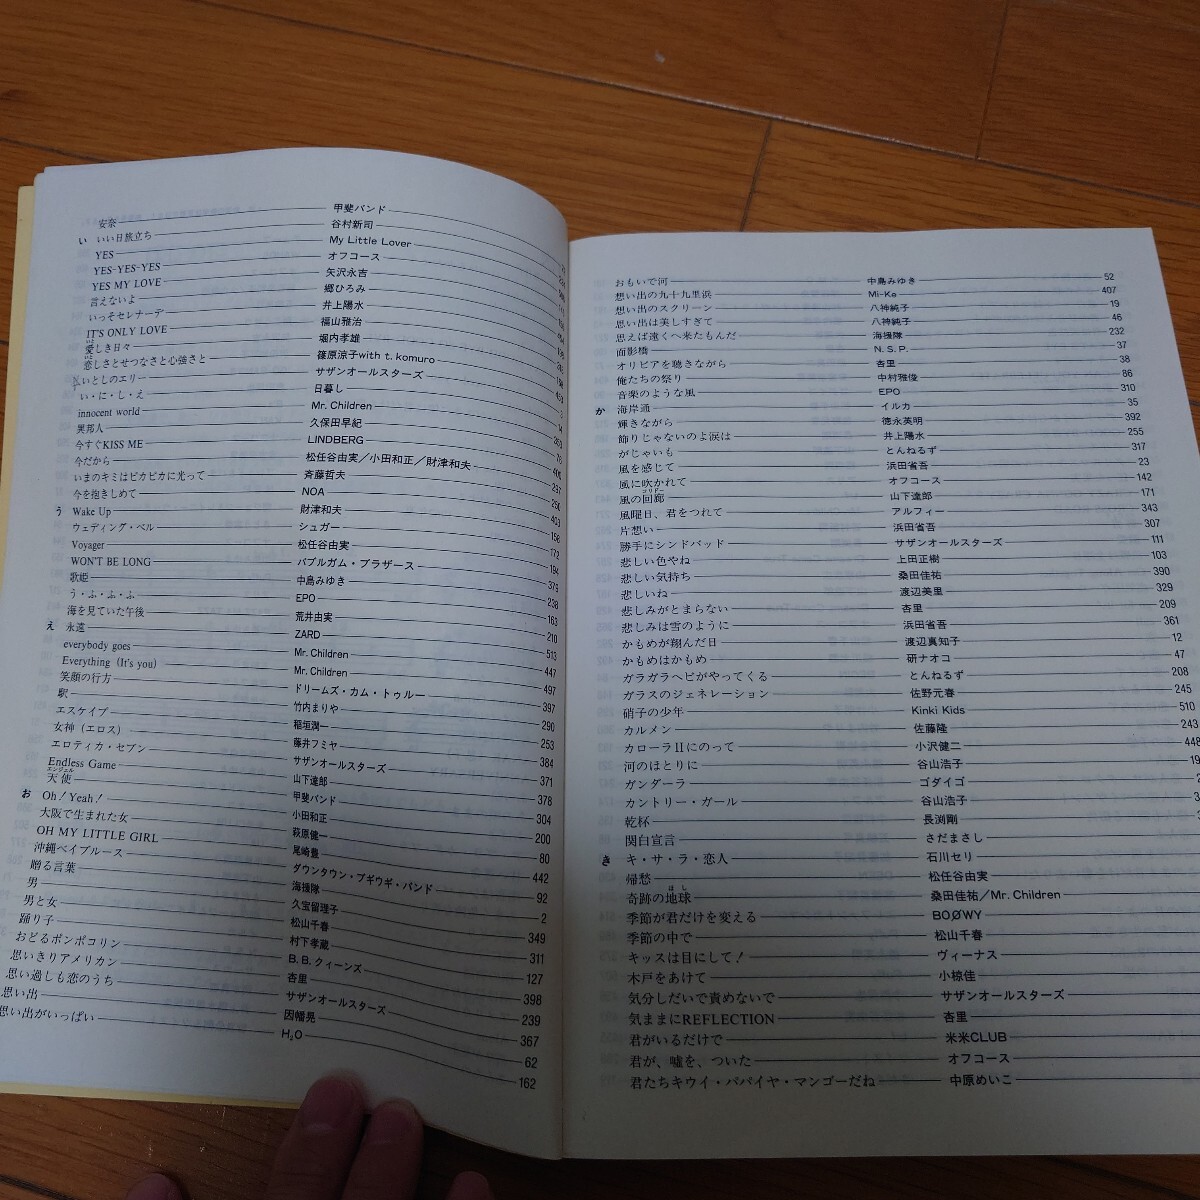 安奈 甲斐バンド
い いい日旅立ち 谷村新司
YES My Little Lover
YES-YES-YES オフコース
YES MY LOVE 矢沢永吉
言えないよ 郷ひろみ
いっそセレナーデ 井上陽水
IT'S ONLY LOVE 福山雅治
愛しき日々 堀内孝雄
恋しさとせつなさと心強さと 篠原涼子with t. komuro
いとしのエリー サザンオールスターズ 3
い・に・し・え 日暮し 14
innocent world Mr. Children
異邦人 久保田早紀 78
今すぐKISS ME LINDBERG 400
今だから 松任谷由実／小田和正／財津和夫 297
いまのキミはピカピカに光って 斉藤哲夫 250
今を抱きしめて NOA 403
う Wake Up 財津和夫 156
ウェディング・ベル シュガー 172
Voyager 松任谷由実 194
WON'T BE LONG バブルガム・ブラザース 379
歌姫 中島みゆき 238
う・ふ・ふ・ふ EPO 163
海を見ていた午後 荒井由実 210
え 永遠 ZARD 513
everybody goes Mr. Children 447
Everything (It's you) Mr. Children 497
笑顔の行方 ドリームズ・カム・トゥルー 397
駅 竹内まりや 290
エスケイプ 稲垣潤一 253
女神（エロス） 藤井フミヤ 384
エロティカ・セブン サザンオールスターズ 371
Endless Game 山下達郎 378
エンジェル
天使 甲斐バンド 304
お Oh! Yeah! 小田和正 200
大阪で生まれた女 萩原健一 80
OH MY LITTLE GIRL 尾崎豊 442
沖縄ベイブルース ダウンタウン・ブギウギ・バンド 92
贈る言葉 海援隊 2
男 久宝留理子 349
男と女 松山千春 311
踊り子 村下孝蔵 127
おどるポンポコリン B.B.クィーンズ 398
思いきりアメリカン 杏里 239
思い過しも恋のうち サザンオールスターズ 367
思い出 因幡晃 62
思い出がいっぱい H₂O 162
おもいで河 中島みゆき 52
想い出の九十九里浜 Mi-Ke 407
想い出のスクリーン 八神純子 19
思い出は美しすぎて 八神純子 46
思えば遠くへ来たもんだ 海援隊 232
面影橋 N.S.P. 37
オリビアを聴きながら 杏里 38
俺たちの祭り 中村雅俊 86
音楽のような風 EPO 310
か 海岸通 イルカ 35
輝きながら 徳永英明 392
飾りじゃないのよ涙は 井上陽水 255
がじゃいも とんねるず 317
風を感じて 浜田省吾 23
風に吹かれて オフコース 142
コリドー
風の回廊 山下達郎 171
風曜日、君をつれて アルフィー 343
片想い 浜田省吾 307
勝手にシンドバッド サザンオールスターズ 111
悲しい色やね 上田正樹 103
悲しい気持ち 桑田佳祐 390
悲しいね 渡辺美里 329
悲しみがとまらない 杏里 209
悲しみは雪のように 浜田省吾 361
かもめが翔んだ日 渡辺真知子 12
かもめはかもめ 研ナオコ 47
ガラガラヘビがやってくる とんねるず 208
ガラスのジェネレーション 佐野元春 245
硝子の少年 Kinki Kids 510
カルメン 佐藤隆 243
カローラⅡにのって 小沢健二 448
河のほとりに 谷山浩子 19
ガンダーラ ゴダイゴ
カントリー・ガール 谷山浩子
乾杯 長渕剛
関白宣言 さだまさし
き キ・サ・ラ・恋人 石川セリ
帰愁 松任谷由実
ほし
奇跡の地球 桑田佳祐／Mr. Children
季節が君だけを変える BOØWY
季節の中で 松山千春
キッスは目にして！ ヴィーナス
木戸をあけて 小椋佳
気分しだいで責めないで サザンオールスターズ
気ままにREFLECTION 杏里
君がいるだけで 米米CLUB
君が、嘘を、ついた オフコース
君たちキウイ・パパイヤ・マンゴーだね 中原めいこ